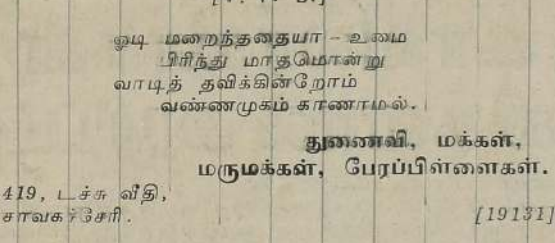 ஓடி மறைந்ததையா – உமை
பிரிந்து மாதமொன்று
வாடித் தவிக்கின்றோம்
வண்ணமுகம் காணாமல்.
துணைவி, மக்கள்,
மருமக்கள், பேரப்பிள்ளைகள்.
419, டச்சு வீதி,
சாவகச்சேரி.
[19131]